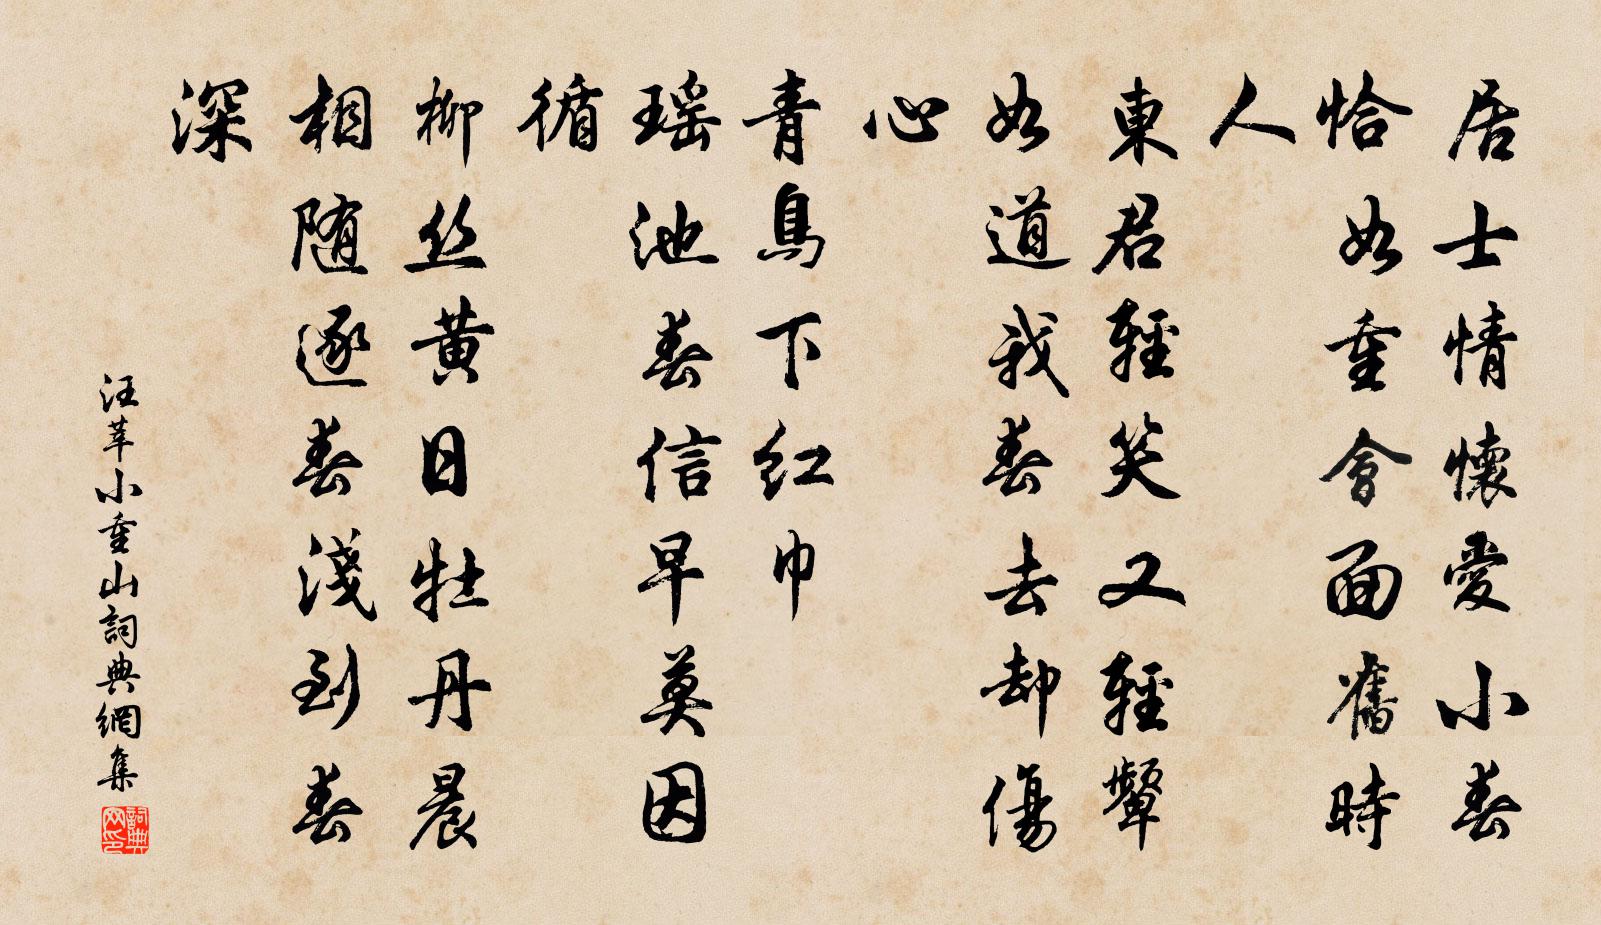 居士情懷愛小春
恰如重會面舊時
人
東君輕笑又輕顰
如道我春去却傷
心
青鳥下红巾
瑶池春信早莫因
循
柳丝黄日牡丹晨
相随逐春淺到春
深
汪莘小重山詞典網集
詞典网印